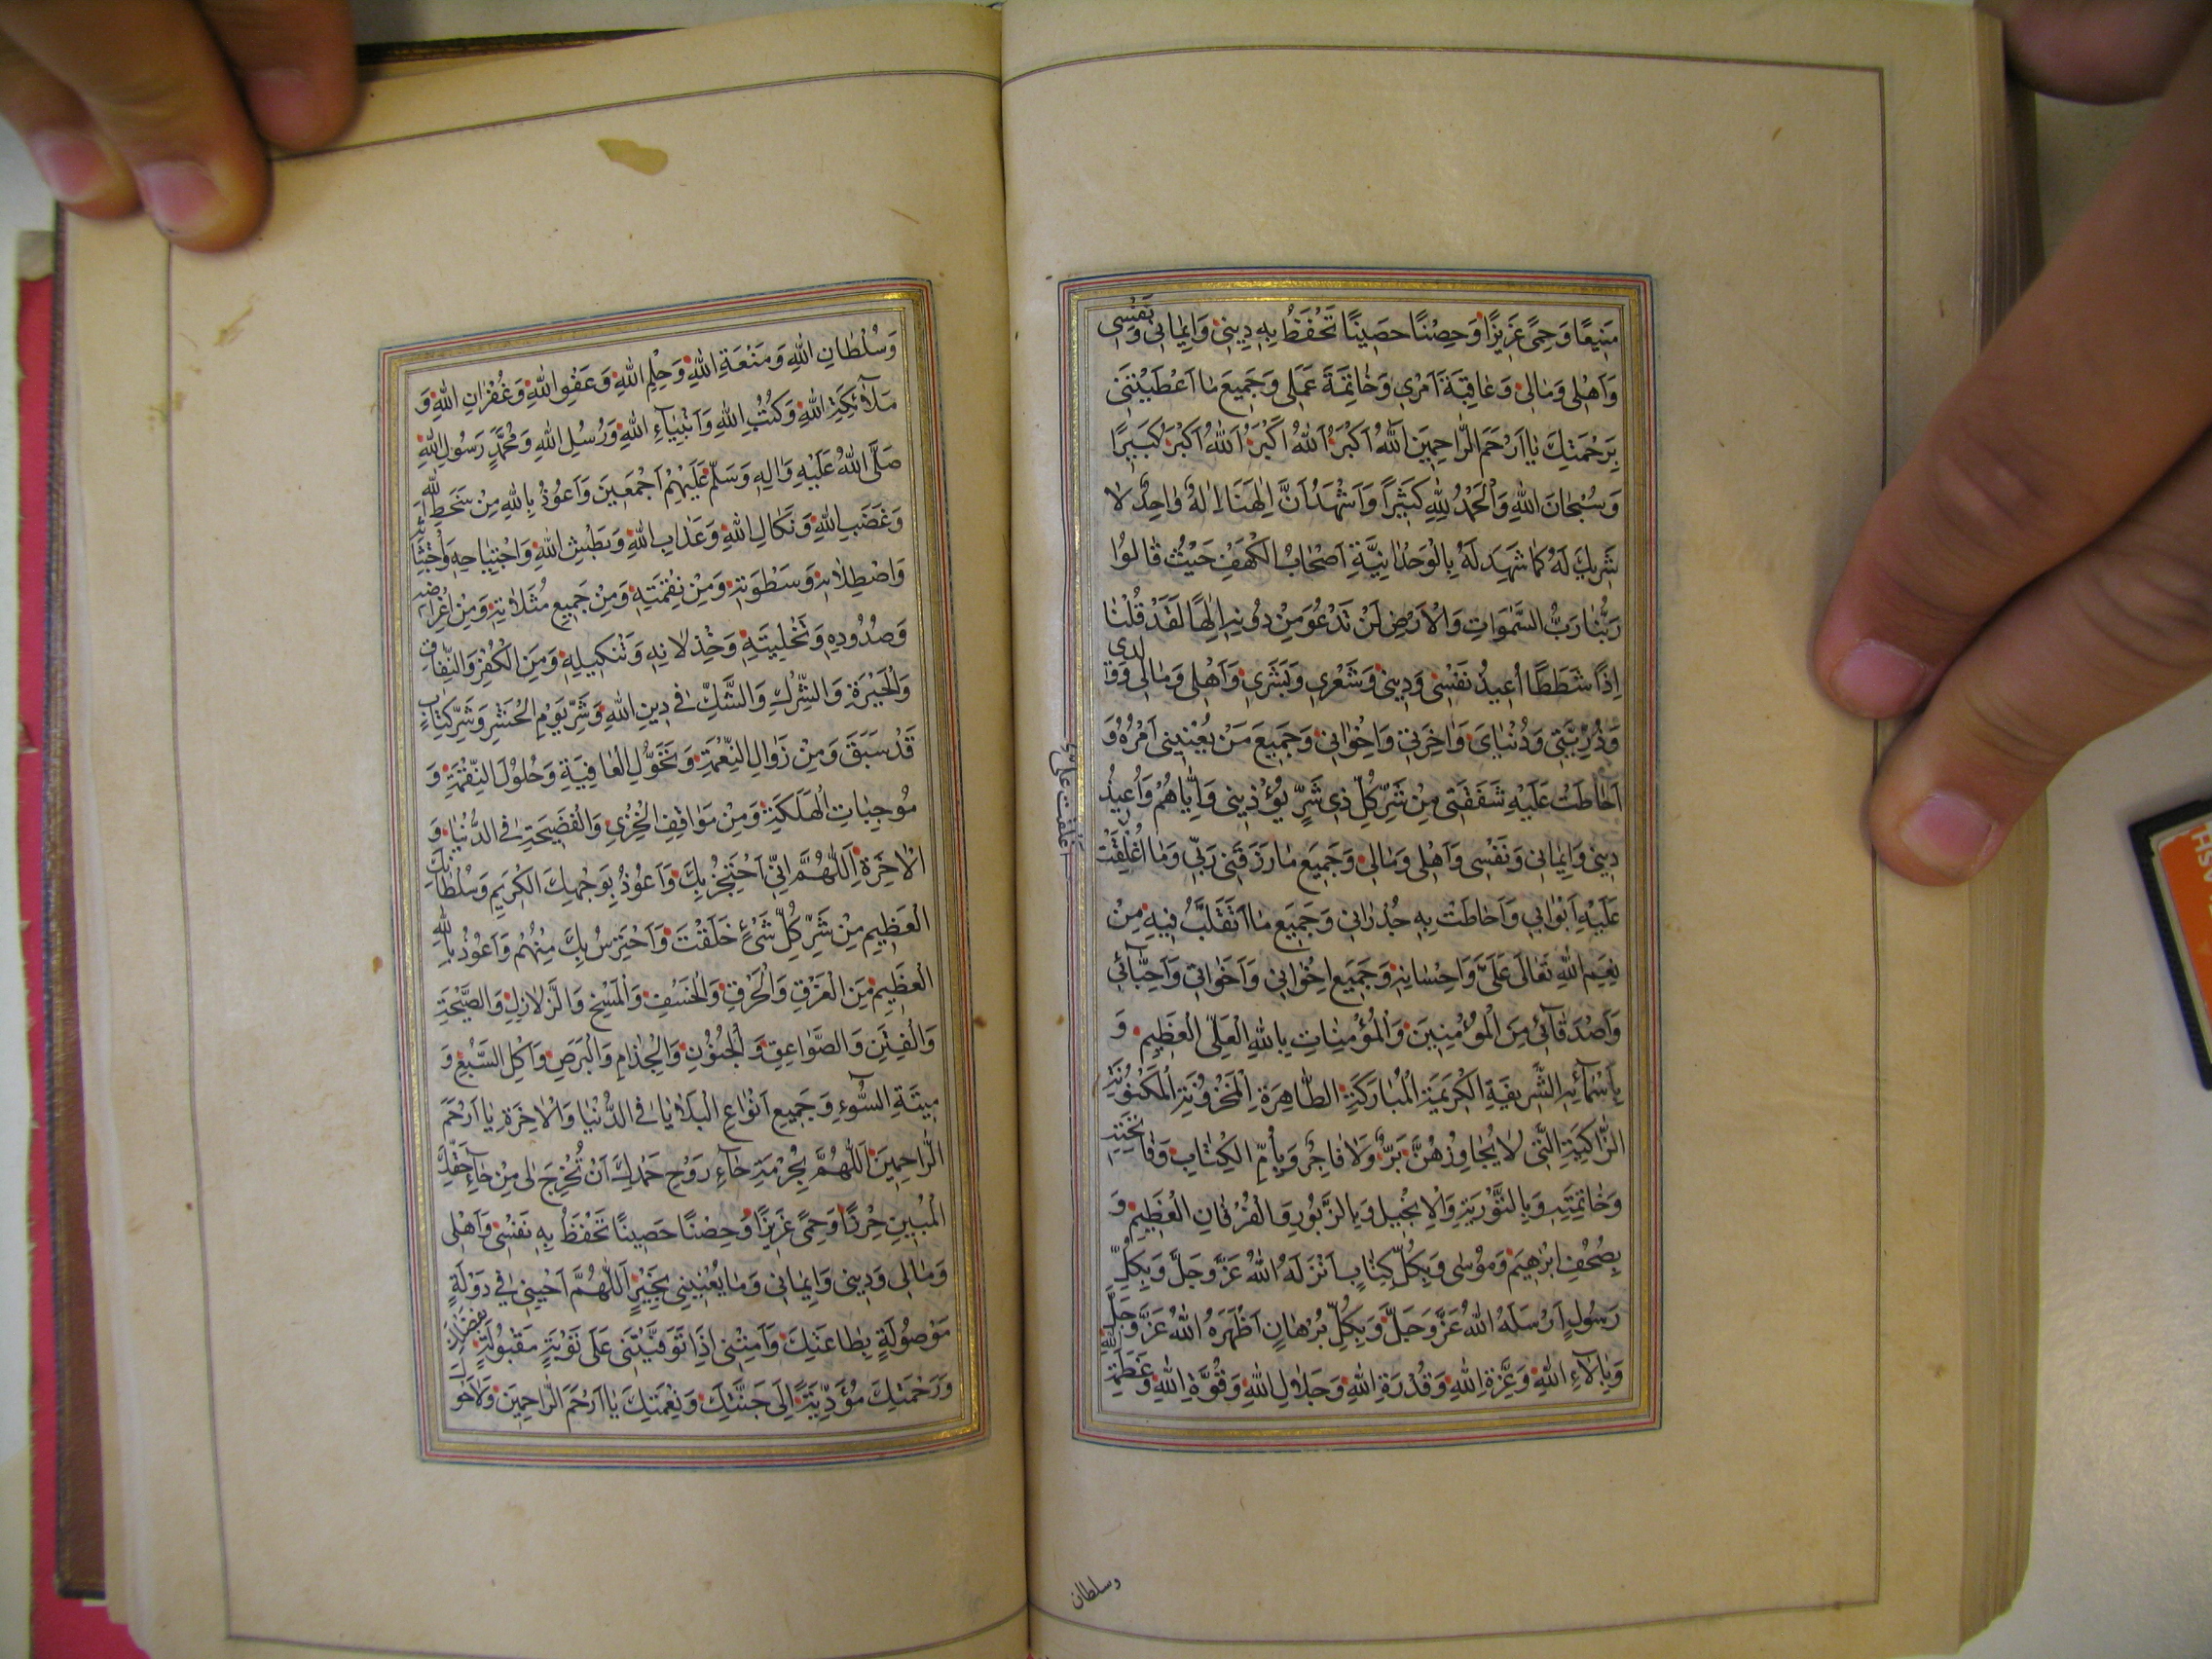 مَنِيعًا وَحِمًى عَزِيزًا وَحِصْنًا حَصِينًا تَحْفَظُ بِهِ دِينِي وَاِيمَانِي وَنَفْسِي
وَاَهْلِي وَمَالِي وَعَاقِبَةَ اَمْرِي وَخَاتِمَةَ عَمَلِي وَجَمِيعَ مَا اَعْطَيْتَنِي
بِرَحْمَتِكَ يَا اَرْحَمَ الرَّاحِمِينَ اَللّٰهُ اَكْبَرُ اَللّٰهُ اَكْبَرُ اَللّٰهُ اَكْبَرُ كَبِيرًا
وَسُبْحَانَ اللّٰهِ وَالْحَمْدُ لِلّٰهِ كَثِيرًا وَاَشْهَدُ اَنَّ اِلٰهَنَا اِلٰهٌ وَاحِدٌ لَا
شَرِيكَ لَهُ كَمَا شَهِدَ لَهُ بِالْوَحْدَانِيَّةِ اَصْحَابُ الْكَهْفِ حَيْثُ قَالُوا
رَبُّنَا رَبُّ السَّمٰوَاتِ وَالْاَرْضِ لَنْ نَدْعُوَ مِنْ دُونِهِ اِلٰهًا لَقَدْ قُلْنَا
اِذًا شَطَطًا اُعِيذُ نَفْسِي وَدِينِي وَشَعْرِي وَبَشَرِي وَاَهْلِي وَمَالِي وَوَلَدِي
وَذُرِّيَّتِي وَدُنْيَايَ وَاٰخِرَتِي وَاِخْوَانِي وَجَمِيعَ مَنْ يُعْنِينِي اَمْرُهُ وَ
اَحَاطَتْ عَلَيْهِ شَفَقَتِي مِنْ شَرِّ كُلِّ ذِي شَرٍّ يُؤْذِينِي وَاِيَّاهُمْ وَاُعِيذُ
دِينِي وَاِيمَانِي وَنَفْسِي وَاَهْلِي وَمَالِي وَجَمِيعَ مَا رَزَقَنِي رَبِّي وَمَا اُغْلِقَتْ
عَلَيْهِ اَبْوَابِي وَاَحَاطَتْ بِهِ جُدْرَانِي وَجَمِيعَ مَا اَتَقَلَّبُ فِيهِ مِنْ
نِعَمِ اللّٰهِ تَعَالَى عَلَيَّ وَاِحْسَانِهِ وَجَمِيعَ اِخْوَانِي وَاَخَوَاتِي وَاَحِبَّائِي
وَاَصْدِقَائِي مِنَ الْمُؤْمِنِينَ وَالْمُؤْمِنَاتِ بِاللّٰهِ الْعَلِيِّ الْعَظِيمِ وَ
بِاَسْمَائِهِ الشَّرِيفَةِ الْكَرِيمَةِ الْمُبَارَكَةِ الطَّاهِرَةِ الْمَخْزُونَةِ الْمَكْنُونَةِ
الزَّاكِيَةِ الَّتِي لَا يُجَاوِزُهُنَّ بَرٌّ وَلَا فَاجِرٌ وَبِاُمِّ الْكِتَابِ وَفَاتِحَتِهِ
وَخَاتِمَتِهِ وَبِالتَّوْرٰيةِ وَالْاِنْجِيلِ وَبِالزَّبُورِ وَالْفُرْقَانِ الْعَظِيمِ وَ
بِصُحُفِ اِبْرٰهِيمَ وَمُوسٰى وَبِكُلِّ كِتَابٍ اَنْزَلَهُ اللّٰهُ عَزَّ وَجَلَّ وَبِكُلِّ
رَسُولٍ اَرْسَلَهُ اللّٰهُ عَزَّ وَجَلَّ وَبِكُلِّ بُرْهَانٍ اَظْهَرَهُ اللّٰهُ عَزَّ وَجَلَّ
وَبِاٰلَاءِ اللّٰهِ وَعِزَّةِ اللّٰهِ وَقُدْرَةِ اللّٰهِ وَجَلَالِ اللّٰهِ وَقُوَّةِ اللّٰهِ وَعَظَمَةِ اللّٰهِ
وسلطان
وَسُلْطَانِ اللّٰهِ وَمَنْعَةِ اللّٰهِ وَحِلْمِ اللّٰهِ وَعَفْوِ اللّٰهِ وَغُفْرَانِ اللّٰهِ وَ
مَلَائِكَةِ اللّٰهِ وَكُتُبِ اللّٰهِ وَاَنْبِيَاءِ اللّٰهِ وَرُسُلِ اللّٰهِ وَمُحَمَّدٍ رَسُولِ اللّٰهِ
صَلَّى اللّٰهُ عَلَيْهِ وَاٰلِهِ وَسَلَّمَ عَلَيْهِمْ اَجْمَعِينَ وَاَعُوذُ بِاللّٰهِ مِنْ سَخَطِ اللّٰهِ
وَغَضَبِ اللّٰهِ وَنَكَالِ اللّٰهِ وَعَذَابِ اللّٰهِ وَبَطْشِ اللّٰهِ وَاجْتِيَاحِهِ وَاجْتِثَاثِهِ
وَاصْطِلَامِهِ وَسَطْوَتِهِ وَمِنْ نِقْمَتِهِ وَمِنْ جَمِيعِ مُثُلَاتِهِ وَمِنْ اِعْرَاضِهِ
وَصُدُودِهِ وَتَخْلِيَتِهِ وَخِذْلَانِهِ وَتَنْكِيلِهِ وَمِنَ الْكُفْرِ وَالنِّفَاقِ
وَالْحَيْرَةِ وَالشِّرْكِ وَالشَّكِّ فِي دِينِ اللّٰهِ وَشَرِّ يَوْمِ الْحَشْرِ وَشَرِّ كِتَابٍ
قَدْ سَبَقَ وَمِنْ زَوَالِ النِّعْمَةِ وَتَحَوُّلِ الْعَافِيَةِ وَحُلُولِ النِّقْمَةِ وَ
مُوجِبَاتِ الْهَلَكَةِ وَمِنْ مَوَاقِفِ الْخِزْيِ وَالْفَضِيحَةِ فِي الدُّنْيَا وَ
الْاٰخِرَةِ اَللّٰهُمَّ اِنِّي اَحْتَجِزُ بِكَ وَاَعُوذُ بِوَجْهِكَ الْكَرِيمِ وَسُلْطَانِكَ
الْعَظِيمِ مِنْ شَرِّ كُلِّ شَيْءٍ خَلَقْتَ وَاَحْتَرِسُ بِكَ مِنْهُمْ وَاَعُوذُ بِاللّٰهِ
الْعَظِيمِ مِنَ الْغَرَقِ وَالْحَرَقِ وَالْخَسْفِ وَالْمَسْخِ وَالزَّلَازِلِ وَالصَّيْحَةِ
وَالْفِتَنِ وَالصَّوَاعِقِ وَالْجُنُونِ وَالْجُذَامِ وَالْبَرَصِ وَاَكْلِ السَّبُعِ وَ
مِيتَةِ السُّوءِ وَجَمِيعِ اَنْوَاعِ الْبَلَايَا فِي الدُّنْيَا وَالْاٰخِرَةِ يَا اَرْحَمَ
الرَّاحِمِينَ اَللّٰهُمَّ بِحُرْمَةِ حَاءِ رَوْحِ حَمْدِكَ اَنْ تُخْرِجَ لِي مِنْ حَاءِ حَقِّكَ
الْمُبِينِ حِرْزًا وَحِمًى عَزِيزًا وَحِصْنًا حَصِينًا تَحْفَظُ بِهِ نَفْسِي وَاَهْلِي
وَمَالِي وَدِينِي وَاِيمَانِي وَمَا يُعْنِينِي بِخَيْرٍ اَللّٰهُمَّ اَحْيِنِي فِي دَوْلَةٍ
مَوْصُولَةٍ بِطَاعَتِكَ وَاَمِتْنِي اِذَا تَوَفَّيْتَنِي عَلَى تَوْبَةٍ مَقْبُولَةٍ بِفَضْلِكَ
وَرَحْمَتِكَ مُؤَدِّيَةً اِلَى جَنَّتِكَ وَنِعْمَتِكَ يَا اَرْحَمَ الرَّاحِمِينَ وَلَا حَوْلَ